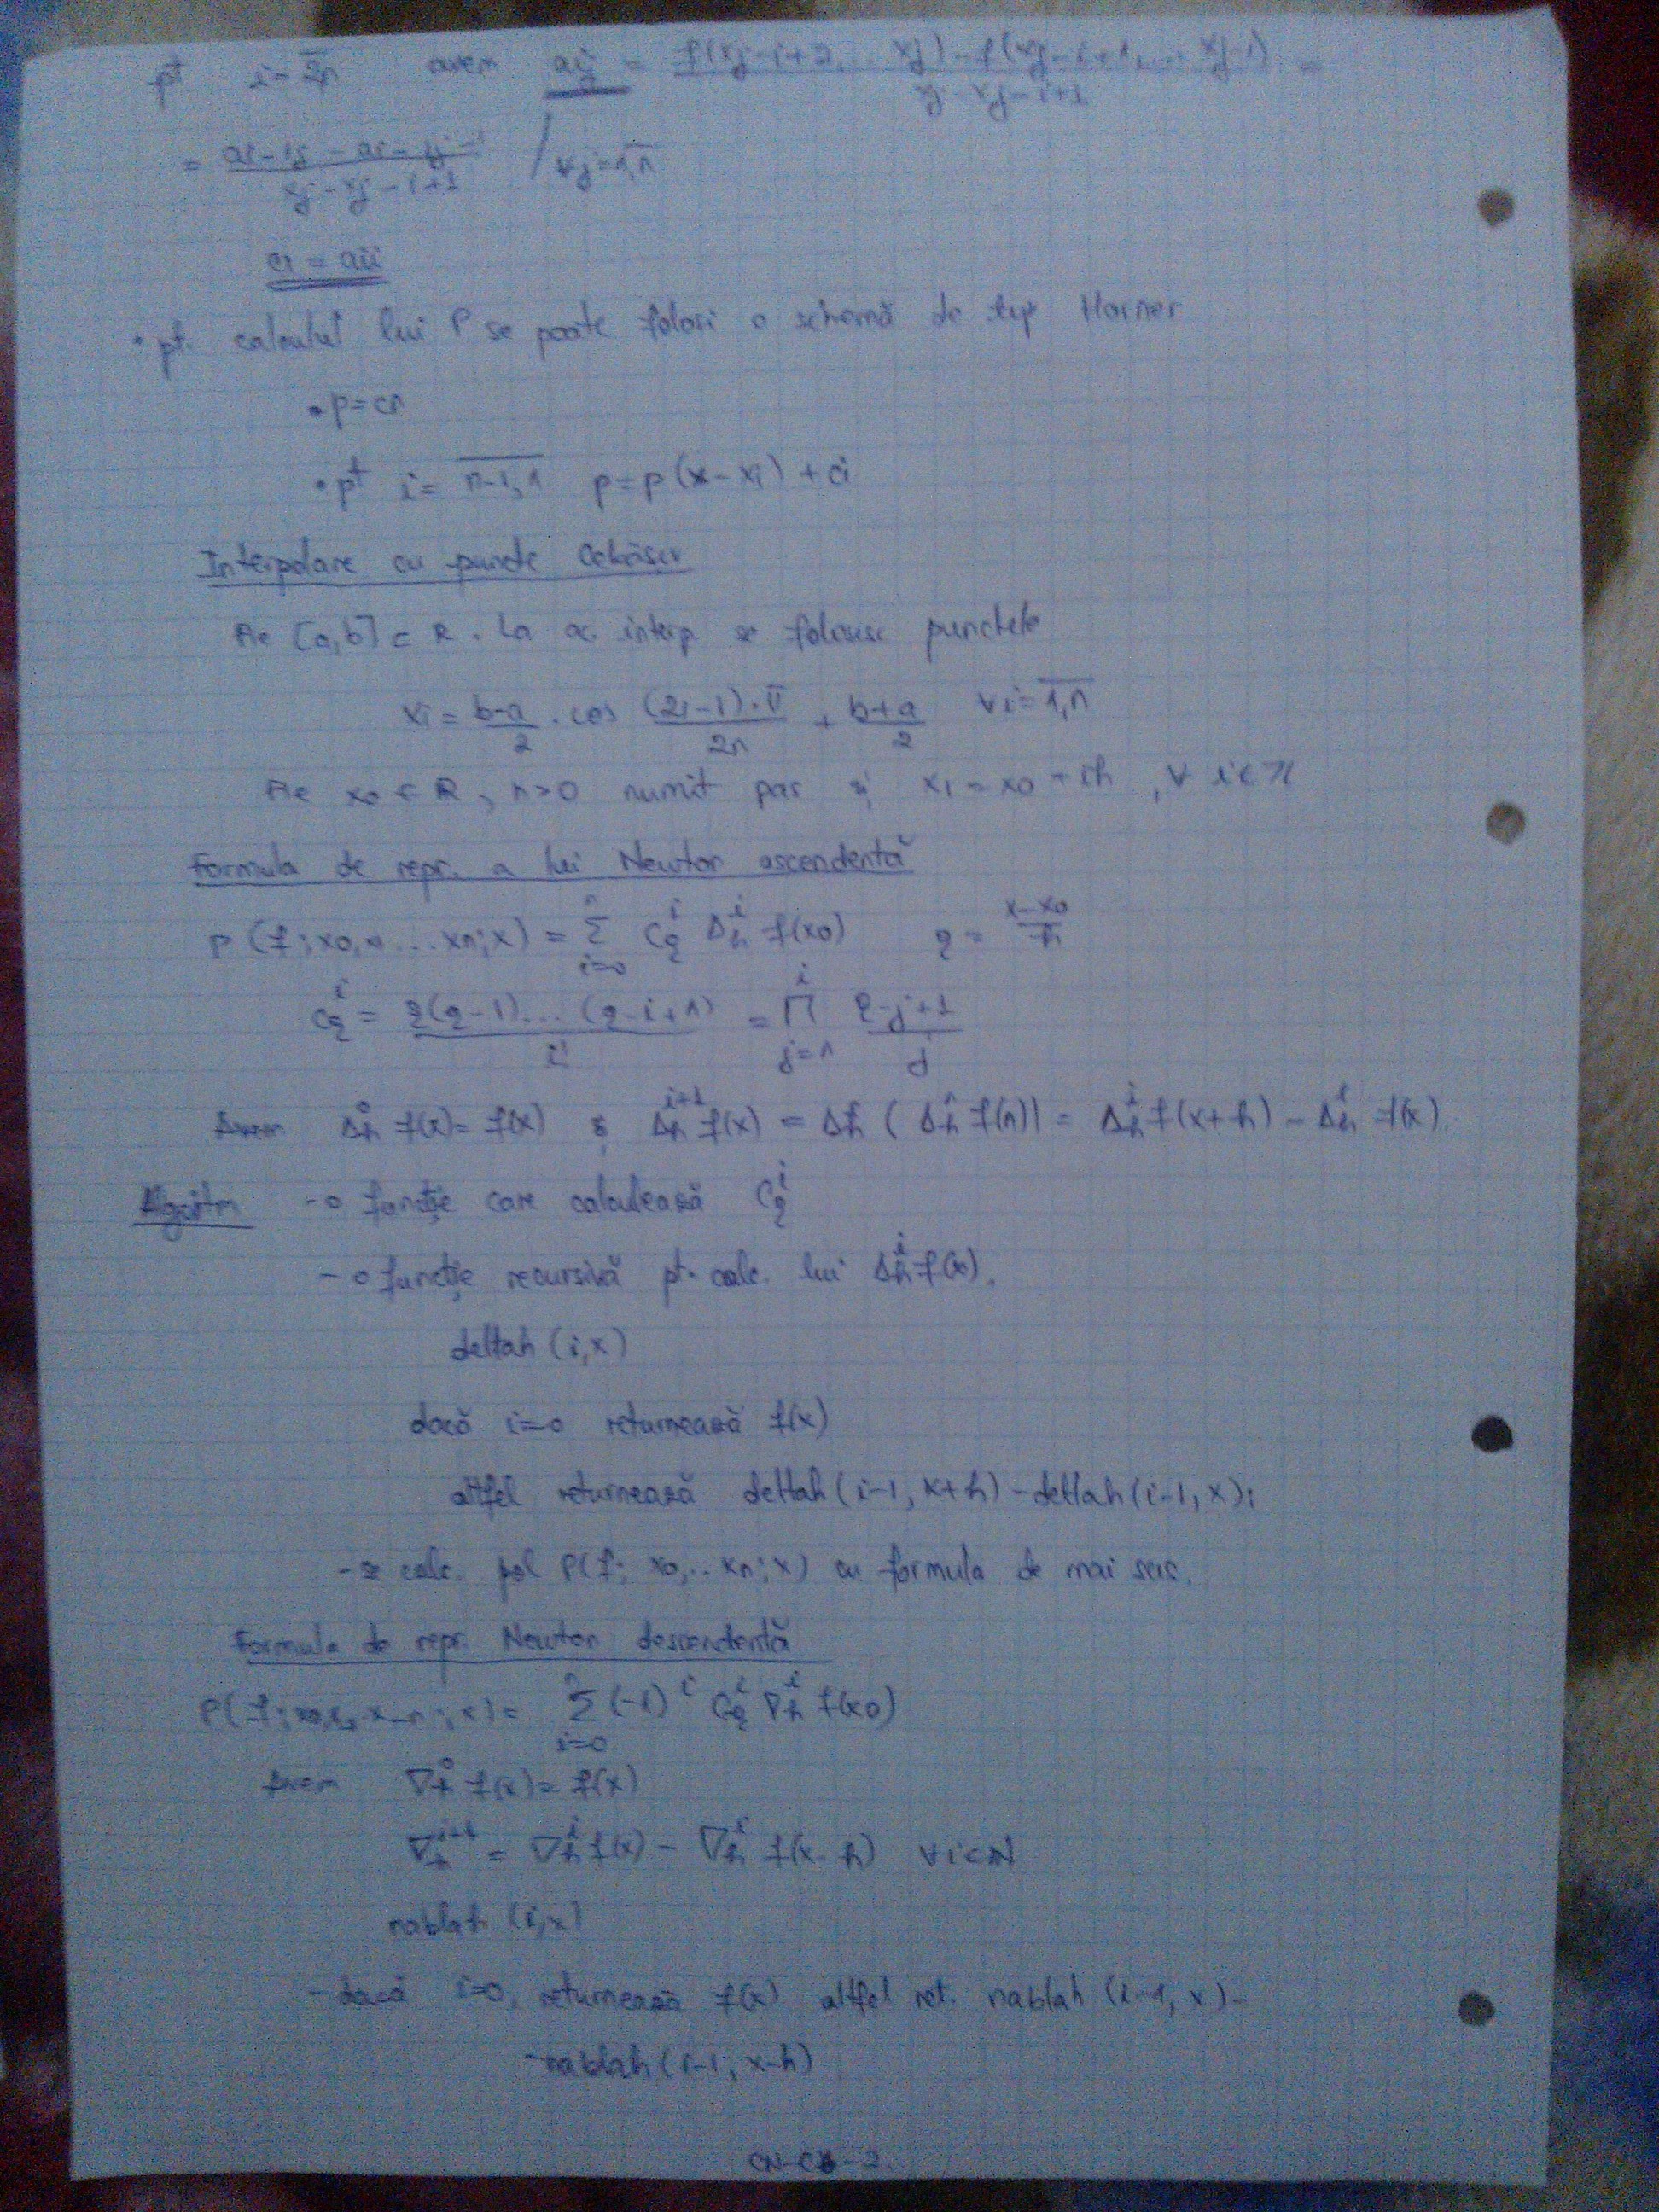 pt i=2,n avem aij = f(xj-i+2,... xj) - f(xj-i+1,... xj-1) / xj - xj-i+1 =
= ai-1j - ai-1j-1 / xj - xj-i+1 / ∀j=1,n
ci = aii
• pt. calculul lui P se poate folosi o schemă de tip Horner
• p=cn
• pt i= n-1,1 p=p(x-xi)+ci
Interpolare cu puncte Cebâșev
Fie [a,b]⊂R. La ac. interp. se folosesc punctele
xi = b-a/2 · cos (2i-1)·π/2n + b+a/2 ∀i=1,n
Fie x0 ∈ R, h>0 numit pas și xi = x0 + ih, ∀ i∈Z
Formula de repr. a lui Newton ascendentă
P(f; x0, ... xn; x) = Σ i=0 n Cq^i Δh^i f(x0) q = x-x0/h
Cq^i = q(q-1)...(q-i+1)/i! = Π j=1 i q-j+1/j
Avem Δh^0 f(x) = f(x) și Δh^i+1 f(x) = Δh (Δh^i f(x)) = Δh^i f(x+h) - Δh^i f(x).
Algoritm - o funcție care calculează Cq^i
- o funcție recursivă pt. calc. lui Δh^i f(x).
deltah (i,x)
dacă i=0 returnează f(x)
altfel returnează deltah(i-1, x+h) - deltah(i-1, x);
- se calc. pol P(f; x0,.. xn; x) cu formula de mai sus.
Formula de repr. Newton descendentă
P(f; x0, x-n; x) = Σ i=0 n (-1)^i Cq^i ∇h^i f(x0)
Avem ∇h^0 f(x) = f(x)
∇h^i+1 = ∇h^i f(x) - ∇h^i f(x-h) ∀i∈N
nablah (i,x)
- dacă i=0, returnează f(x) altfel ret. nablah (i-1, x) -
- nablah(i-1, x-h)
CN-C8-2.